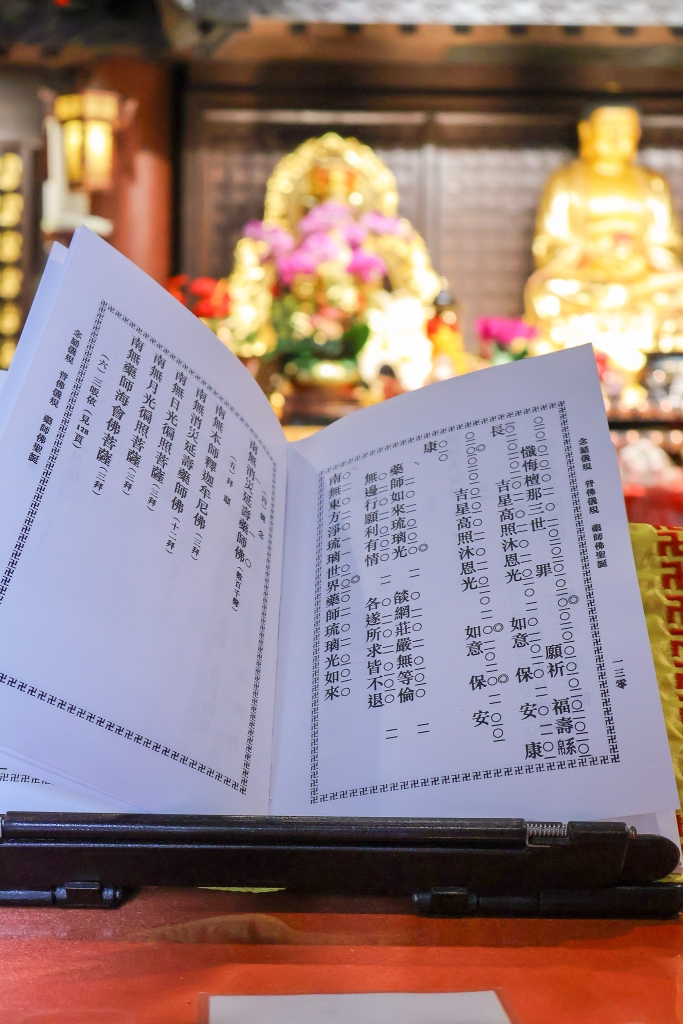 念誦儀規 普佛儀規 藥師佛聖誕 一三零
懺悔檀那三世 罪 願祈 福壽緜
長 吉星高照沐恩光 如意 保安康
吉星高照沐恩光 如意 保安
康
藥師如來琉璃光 燄網莊嚴無等倫
無邊行願利有情 各遂所求皆不退
南無東方淨琉璃世界藥師琉璃光如來
(四) 繞念
南無消災延壽藥師佛(數百千聲)
(五) 拜願
南無本師釋迦牟尼佛(三拜)
南無消災延壽藥師佛(十二拜)
南無日光徧照菩薩(三拜)
南無月光徧照菩薩(三拜)
南無藥師海會佛菩薩(三拜)
(六) 三皈依(見128頁)
念誦儀規 普佛儀規 藥師佛聖誕